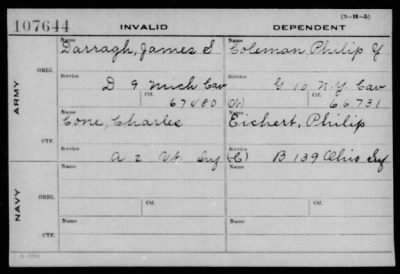 (3-H-5)
107644 INVALID DEPENDENT
Name Name
Darragh, James S Coleman, Philip Y
ARMY
ORIG. Service Service
D 9 Mich Cav G 10 N.Y. Cav
Ctf. 67480 (W) Ctf. 66.731
Name Name
Cone, Charles Eichert, Philip
CTF. Service Service
A 2 Vt. Inf (C) B 139 Ohio Inf
NAVY
Name Name
ORIG. Service Service
Ctf. Ctf.
Name Name
CTF. Service Service